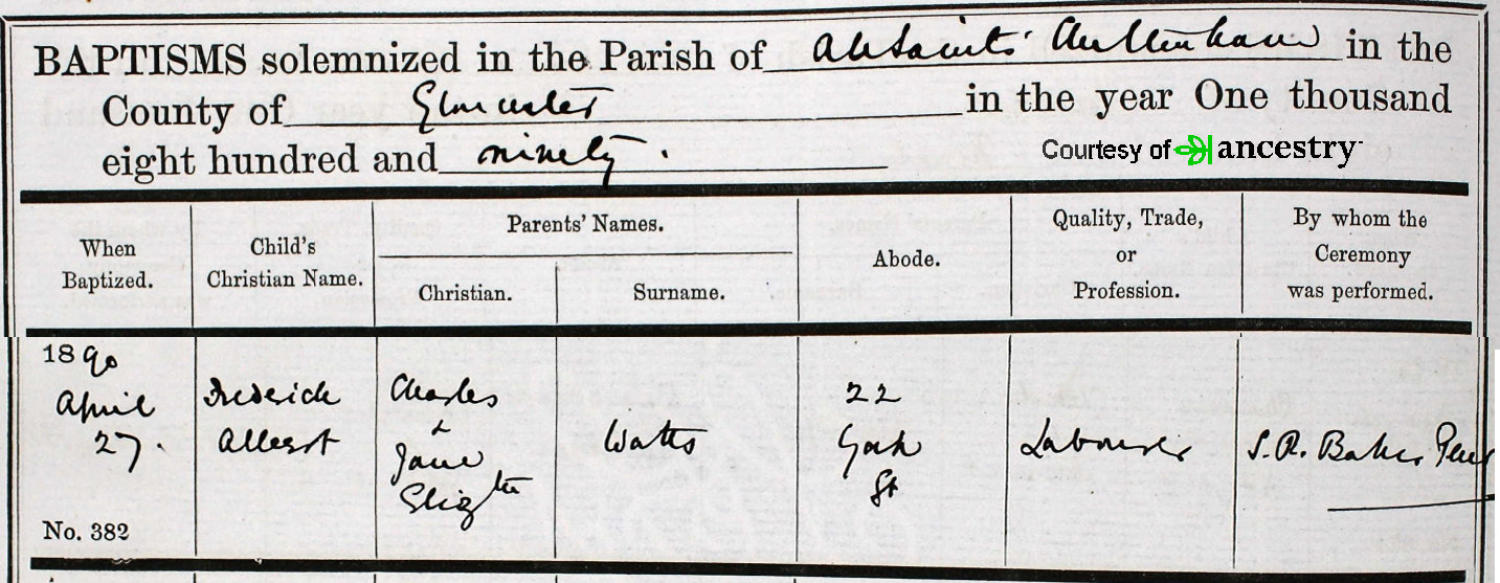 BAPTISMS solemnized in the Parish of All Saints' Cheltenham in the
County of Gloucester in the year One thousand
eight hundred and ninety.
Courtesy of ancestry
When Baptized.
Child's Christian Name.
Parents' Names.
Christian.
Surname.
Abode.
Quality, Trade, or Profession.
By whom the Ceremony was performed.
1890
April
27.
No. 382
Frederick
Albert
Charles
+
Jane
Elizth
Watts
22
York
St
Labourer
S. R. Baker